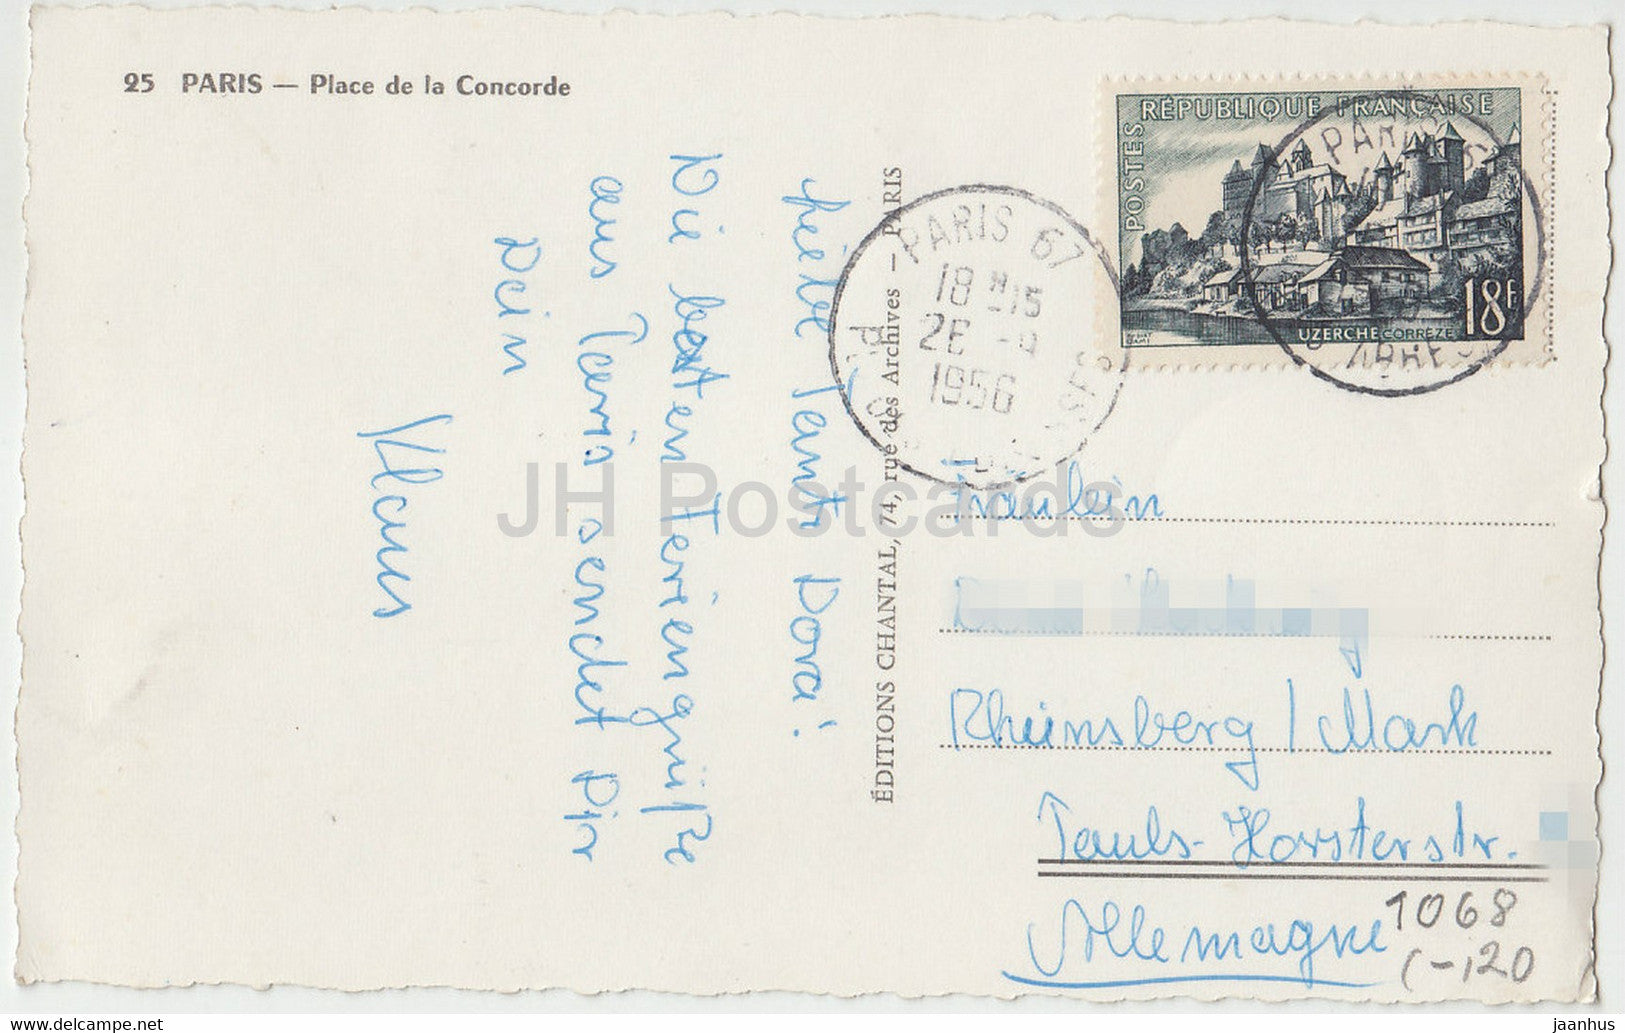 25 PARIS — Place de la Concorde
Liebe Tante Dora!
Die besten Feriengrüße
aus Paris sendet Dir
Dein
Klaus
ÉDITIONS CHANTAL, 74, rue des Archives — PARIS
RÉPUBLIQUE FRANÇAISE
POSTES
UZERCHE CORRÈZE
18F
PARIS 67
18 H 15
1956
PARIS
Fräulein
Rheinsberg / Mark
Pauls-Horsterstr.
Allemagne
1068
(-,20
JH Postcards
delcampe.net
jaanhus